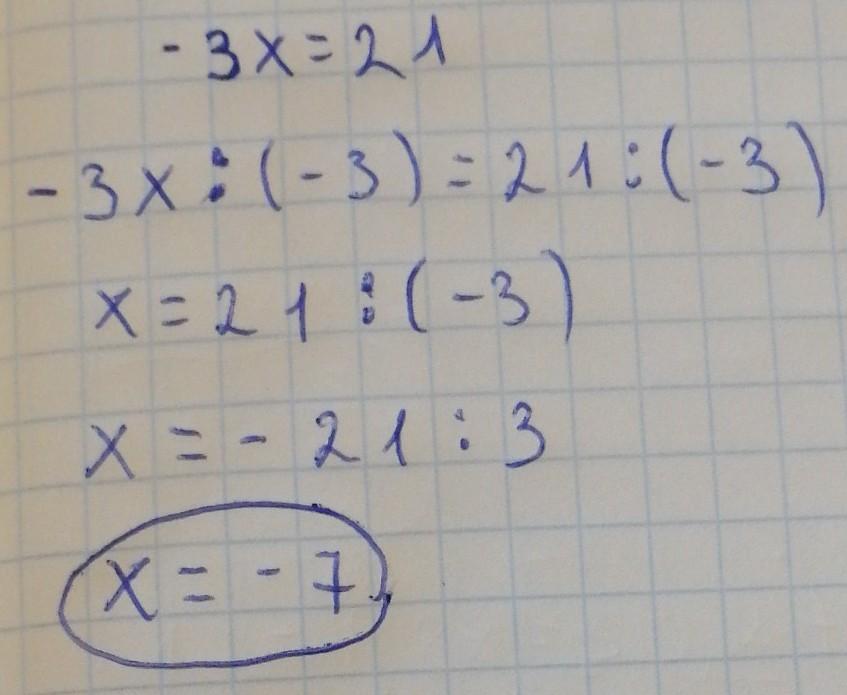 -3x=21
-3x:(-3)=21:(-3)
x=21:(-3)
x=-21:3
x=-7